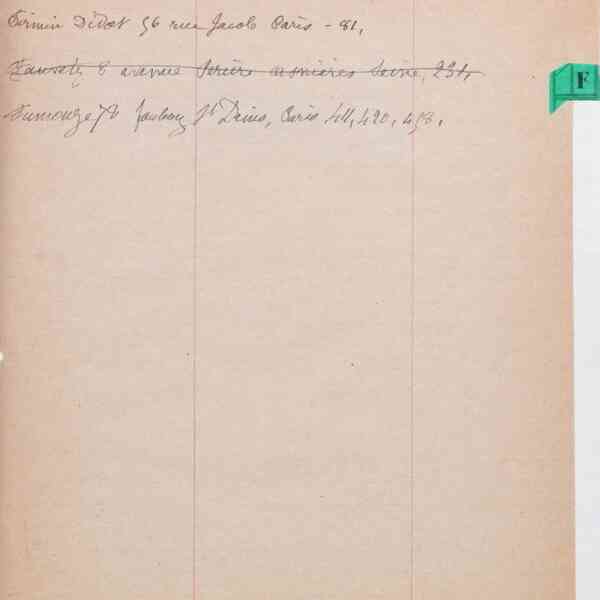 Firmin Didot 56 rue Jacob Paris - 81,
F
8 avenue asnières Seine, 234
Fumouze 78 faubourg St Denis, Paris 411, 420, 498.